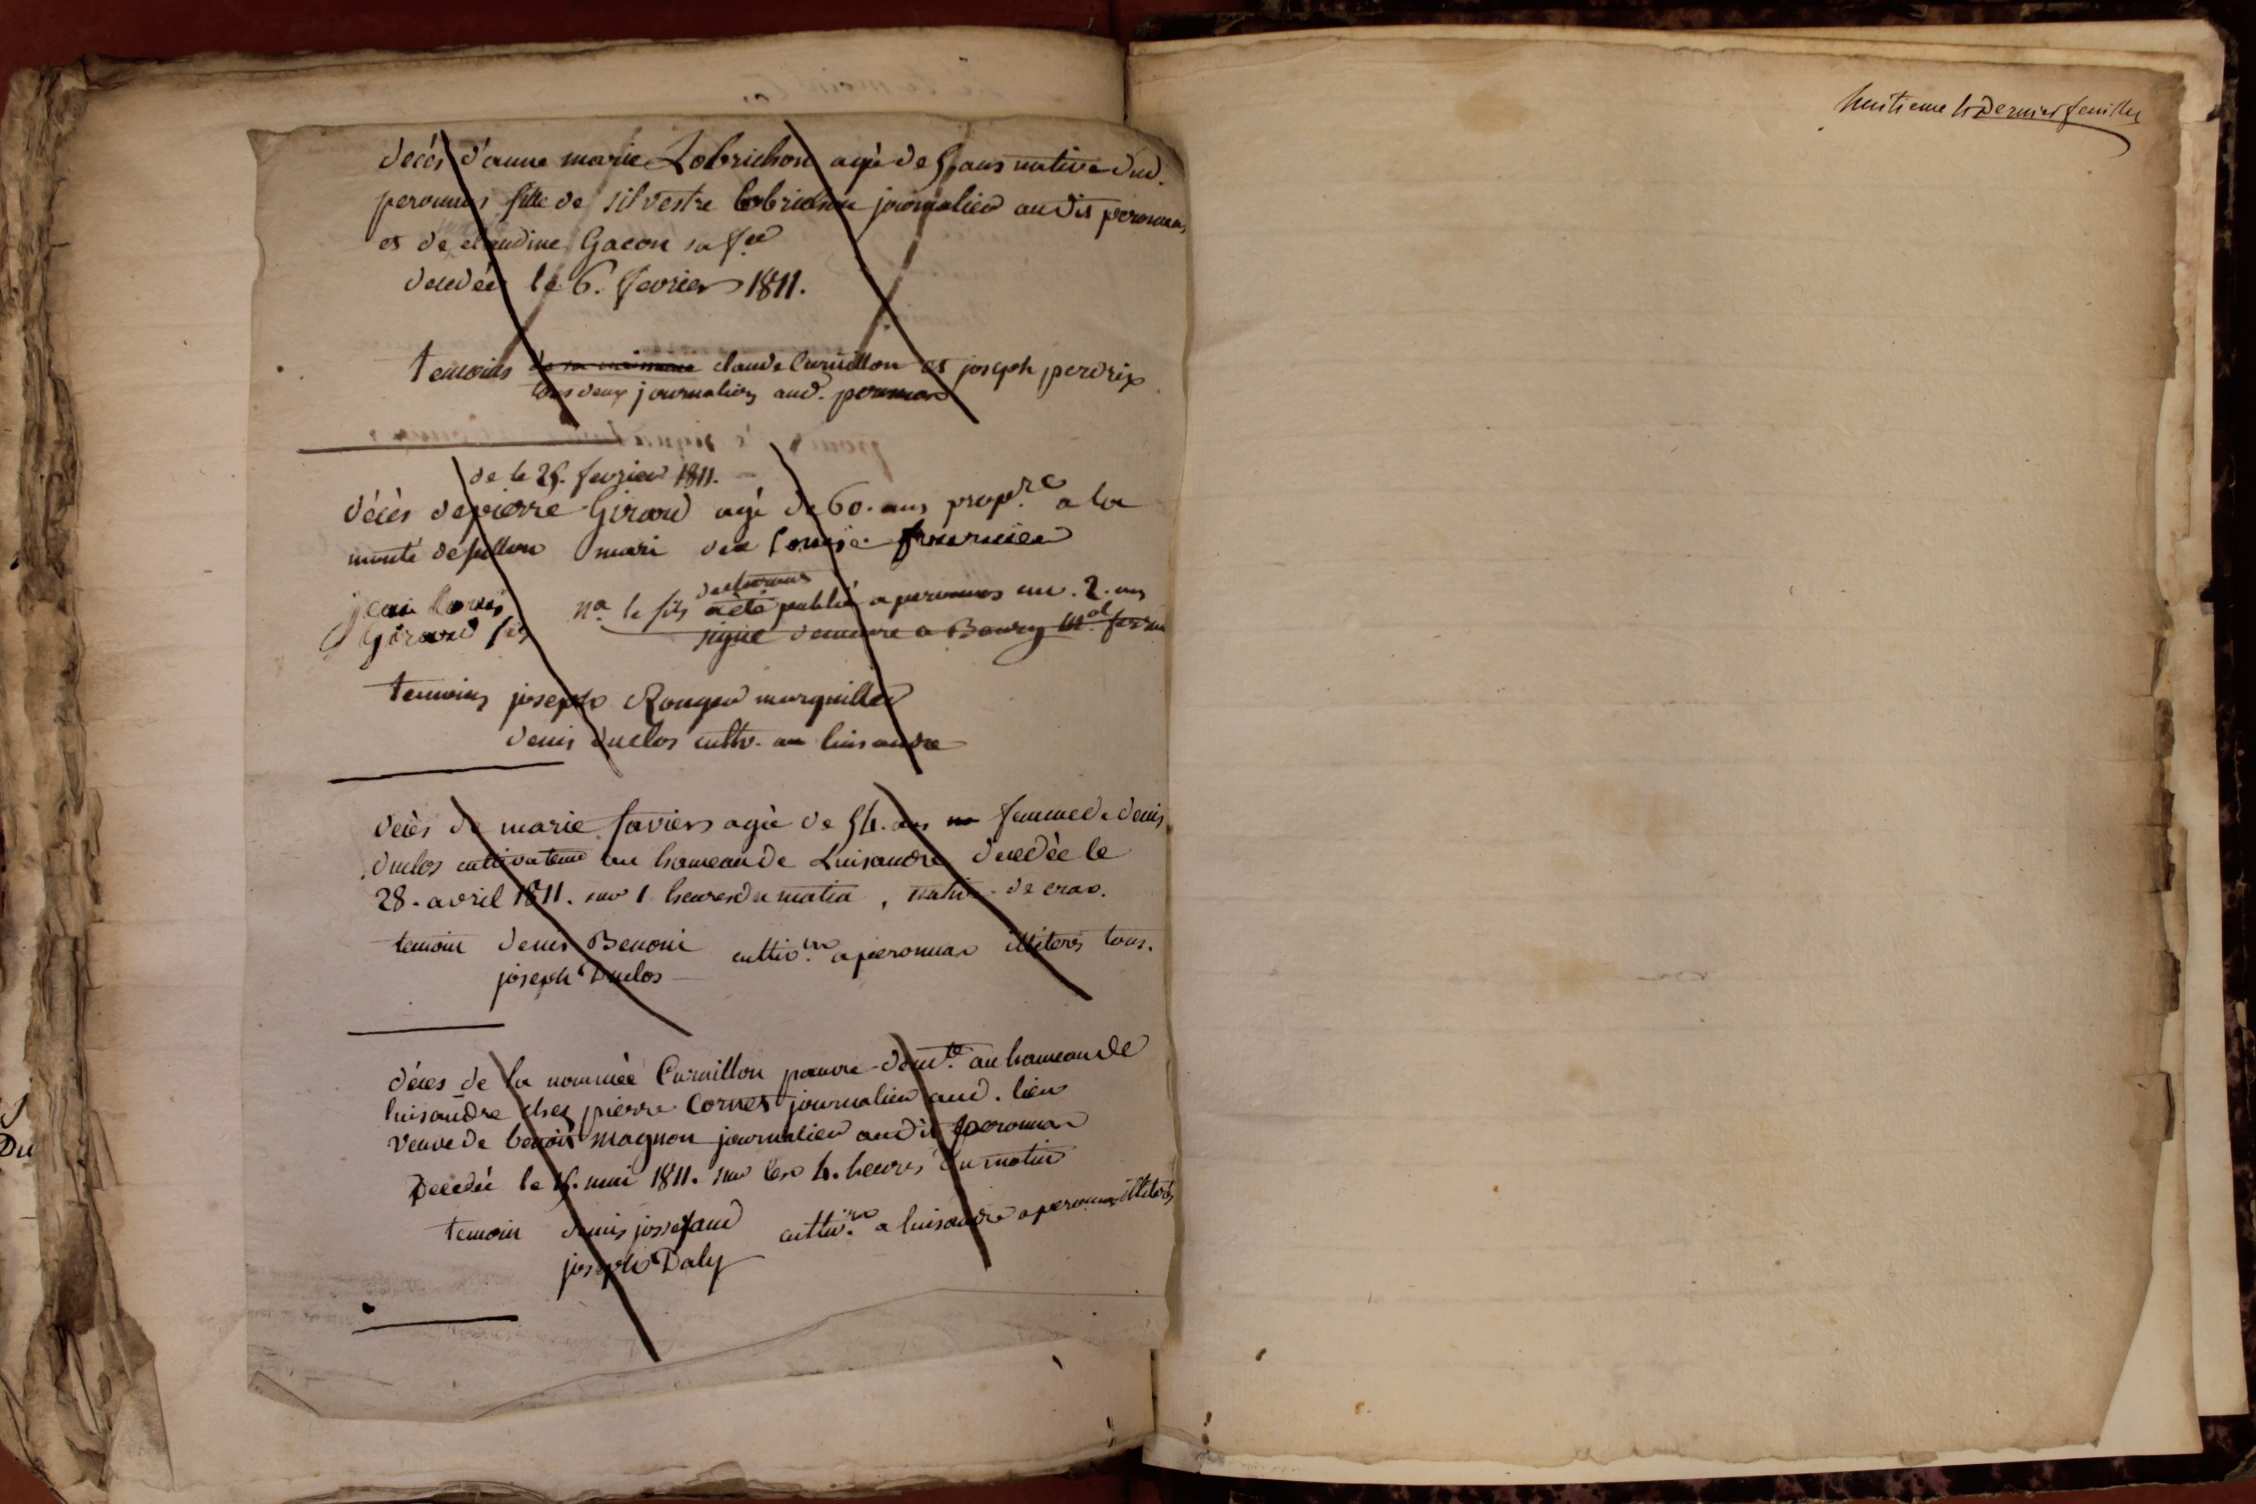 decés d'anne marie Lobrichon agé de 5 ans native dud.
peronnas fille de silvestre lobrichon journalier au dit peronnas
et de claudine Gacon sa f.e
decedée le 6. fevrier 1811.
temoins claude Curnillon et joseph perdrix
tous deux journaliers aud. peronnas
de le 25. fevrier 1811.
décès de pierre Girard agé de 60. ans prop.re a la
mari de louise fournier
jean louis
Girard fils
n.a le fils a été publié a peronnas
signé demeure a Bourg
temoins joseph Rouger marguillier
denis duclos cultiv. au luisandre
décès de marie favier agée de 54. ans femme de denis
duclos cultivateur au hameau de Luisandre decedée le
28. avril 1811. sur 1 heures du matin, native de cras.
temoin denis Benoni
joseph Duclos
cultiv.rs a peronnas illiterés tous.
décès de la nommée Curnillon pauvre dem.te au hameau de
luisandre chez pierre Cornet journalier aud. lieu
veuve de benoit magnon journalier au dit peronnas
Decedée le mai 1811. sur les 4. heures du matin
temoin denis josserand
joseph Daly
cultiv.rs a luisandre a peronnas illiterés
huitieme et Dernier feuillet